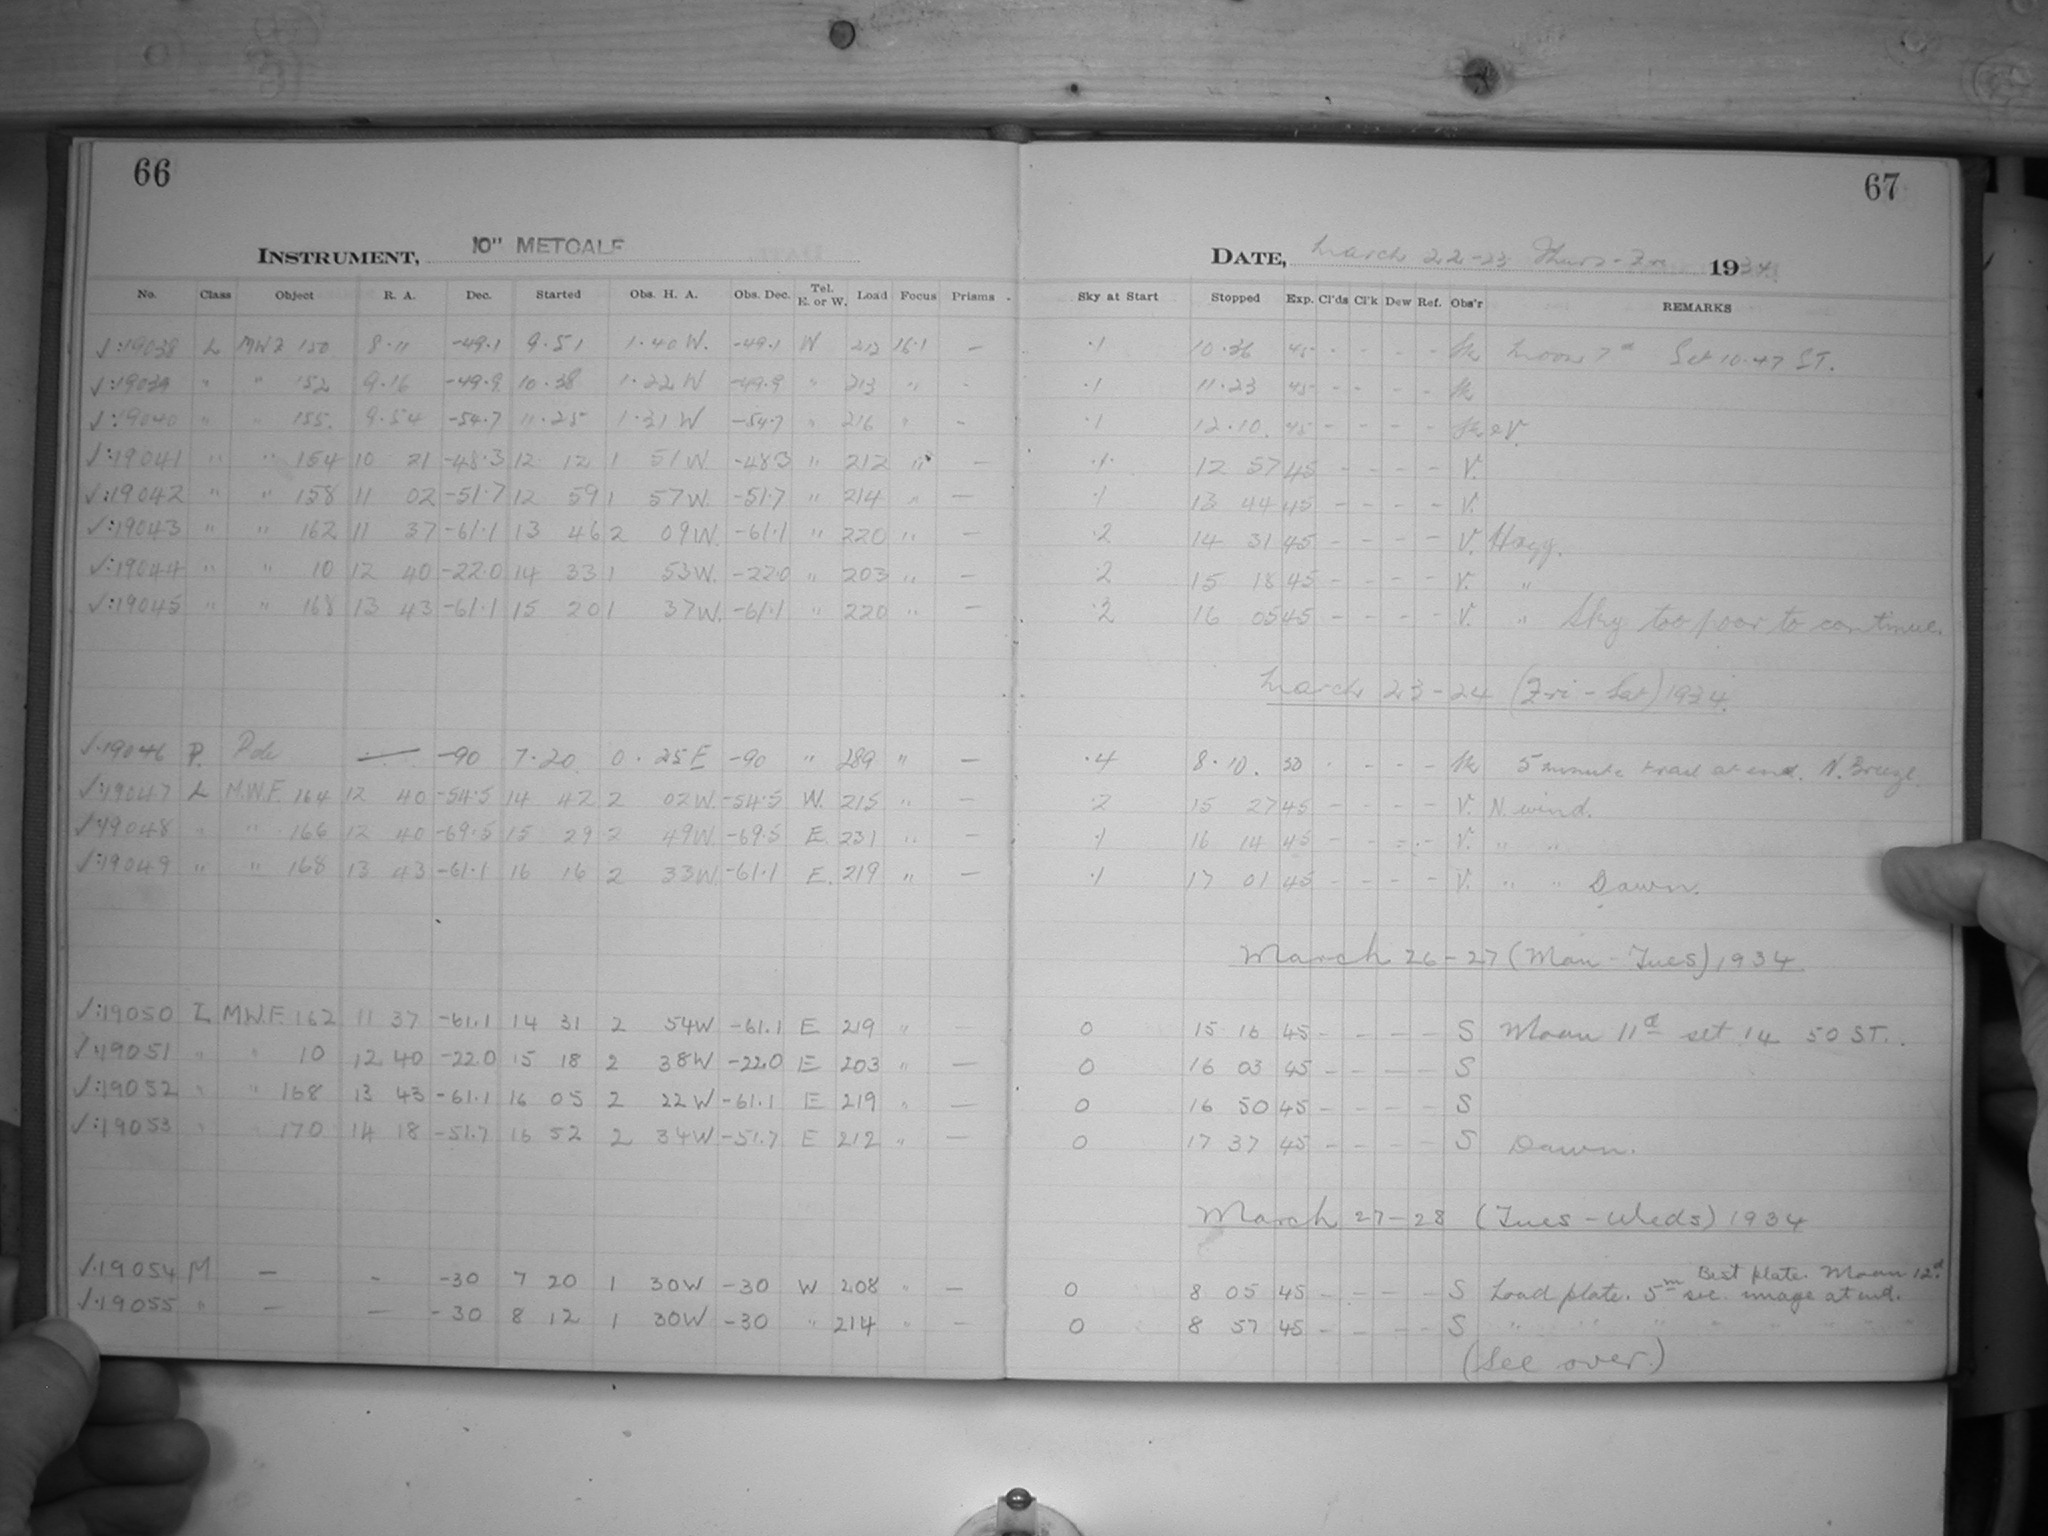 66 67
INSTRUMENT, 10" METCALF DATE, March 22-23 Thurs-Fri 1934
No. Class Object R. A. Dec. Started Obs. H. A. Obs. Dec. Tel. E. or W. Load Focus Prisms Sky at Start Stopped Exp. Cl'ds Cl'k Dew Ref. Obs'r REMARKS
√:19038 L MWF 150 8·11 -49.1 9·51 1·40 W. -49.1 W 212 16·1 — ·1 10·36 45 - - - - Sk Moon 7d Set 10·47 ST.
√:19039 " " 152 9·16 -49.9 10·38 1·22 W -49.9 " 213 " - ·1 11·23 45 - - - - Sk
√:19040 " " 155. 9·54 -54.7 11·25 1·31 W -54.7 " 216 " - ·1 12·10. 45 - - - - Sk & V.
√:19041 " " 154 10 21 -48·3 12 12 1 51W. -48·3 " 212 " — ·1· 12 57 45 - - - - V.
√:19042 " " 158 11 02 -51·7 12 59 1 57W. -51.7 " 214 " — ·1 13 44 45 - - - - V.
√:19043 " " 162 11 37 -61·1 13 46 2 09W. -61·1 " 220 " — ·2 14 31 45 - - - - V. Hazy.
√:19044 " " 10 12 40 -22.0 14 33 1 53W. -22.0 " 203 " — ·2 15 18 45 - - - - V. "
√:19045 " " 168 13 43 -61·1 15 20 1 37W. -61·1 " 220 " — ·2 16 05 45 - - - - V. " Sky too poor to continue.
March 23-24 (Fri-Sat) 1934.
√·19046 P. Pole — -90 7·20 0·25 E -90 " 289 " — ·4 8·10. 50 · - - - Sk 5 minute trail at end. N. Breeze.
√:19047 L M.W.F. 164 12 40 -54·5 14 42 2 02W. -54·5 W. 215 " — ·2 15 27 45 - - - - V. N. wind.
√:19048 " " 166 12 40 -69·5 15 29 2 49W. -69·5 E. 231 " — ·1 16 14 45 - - - - V. " "
√:19049 " " 168 13 43 -61·1 16 16 2 33W. -61·1 E. 219 " — ·1 17 01 45 - - - - V. " " Dawn.
March 26-27 (Mon-Tues) 1934
√:19050 L M.W.F. 162 11 37 -61.1 14 31 2 54W -61.1 E 219 " 0 15 16 45 - - - - S Moon 11d set 14 50 ST.
√:19051 " " 10 12 40 -22.0 15 18 2 38W -22.0 E 203 " — 0 16 03 45 - - - - S
√:19052 " " 168 13 43 -61.1 16 05 2 22W -61.1 E 219 " — 0 16 50 45 - - - - S
√:19053 " " 170 14 18 -51.7 16 52 2 34W -51.7 E 212 " — 0 17 37 45 - - - - S Dawn.
March 27-28 (Tues-Weds) 1934
√·19054 M — - -30 7 20 1 30W -30 W 208 " — 0 8 05 45 - - - - S Load plate. 5m sec. image at end. Best plate. Moon 12d.
√·19055 " — — -30 8 12 1 30W -30 " 214 " — 0 8 57 45 - - - - S " " " " " " "
(See over.)